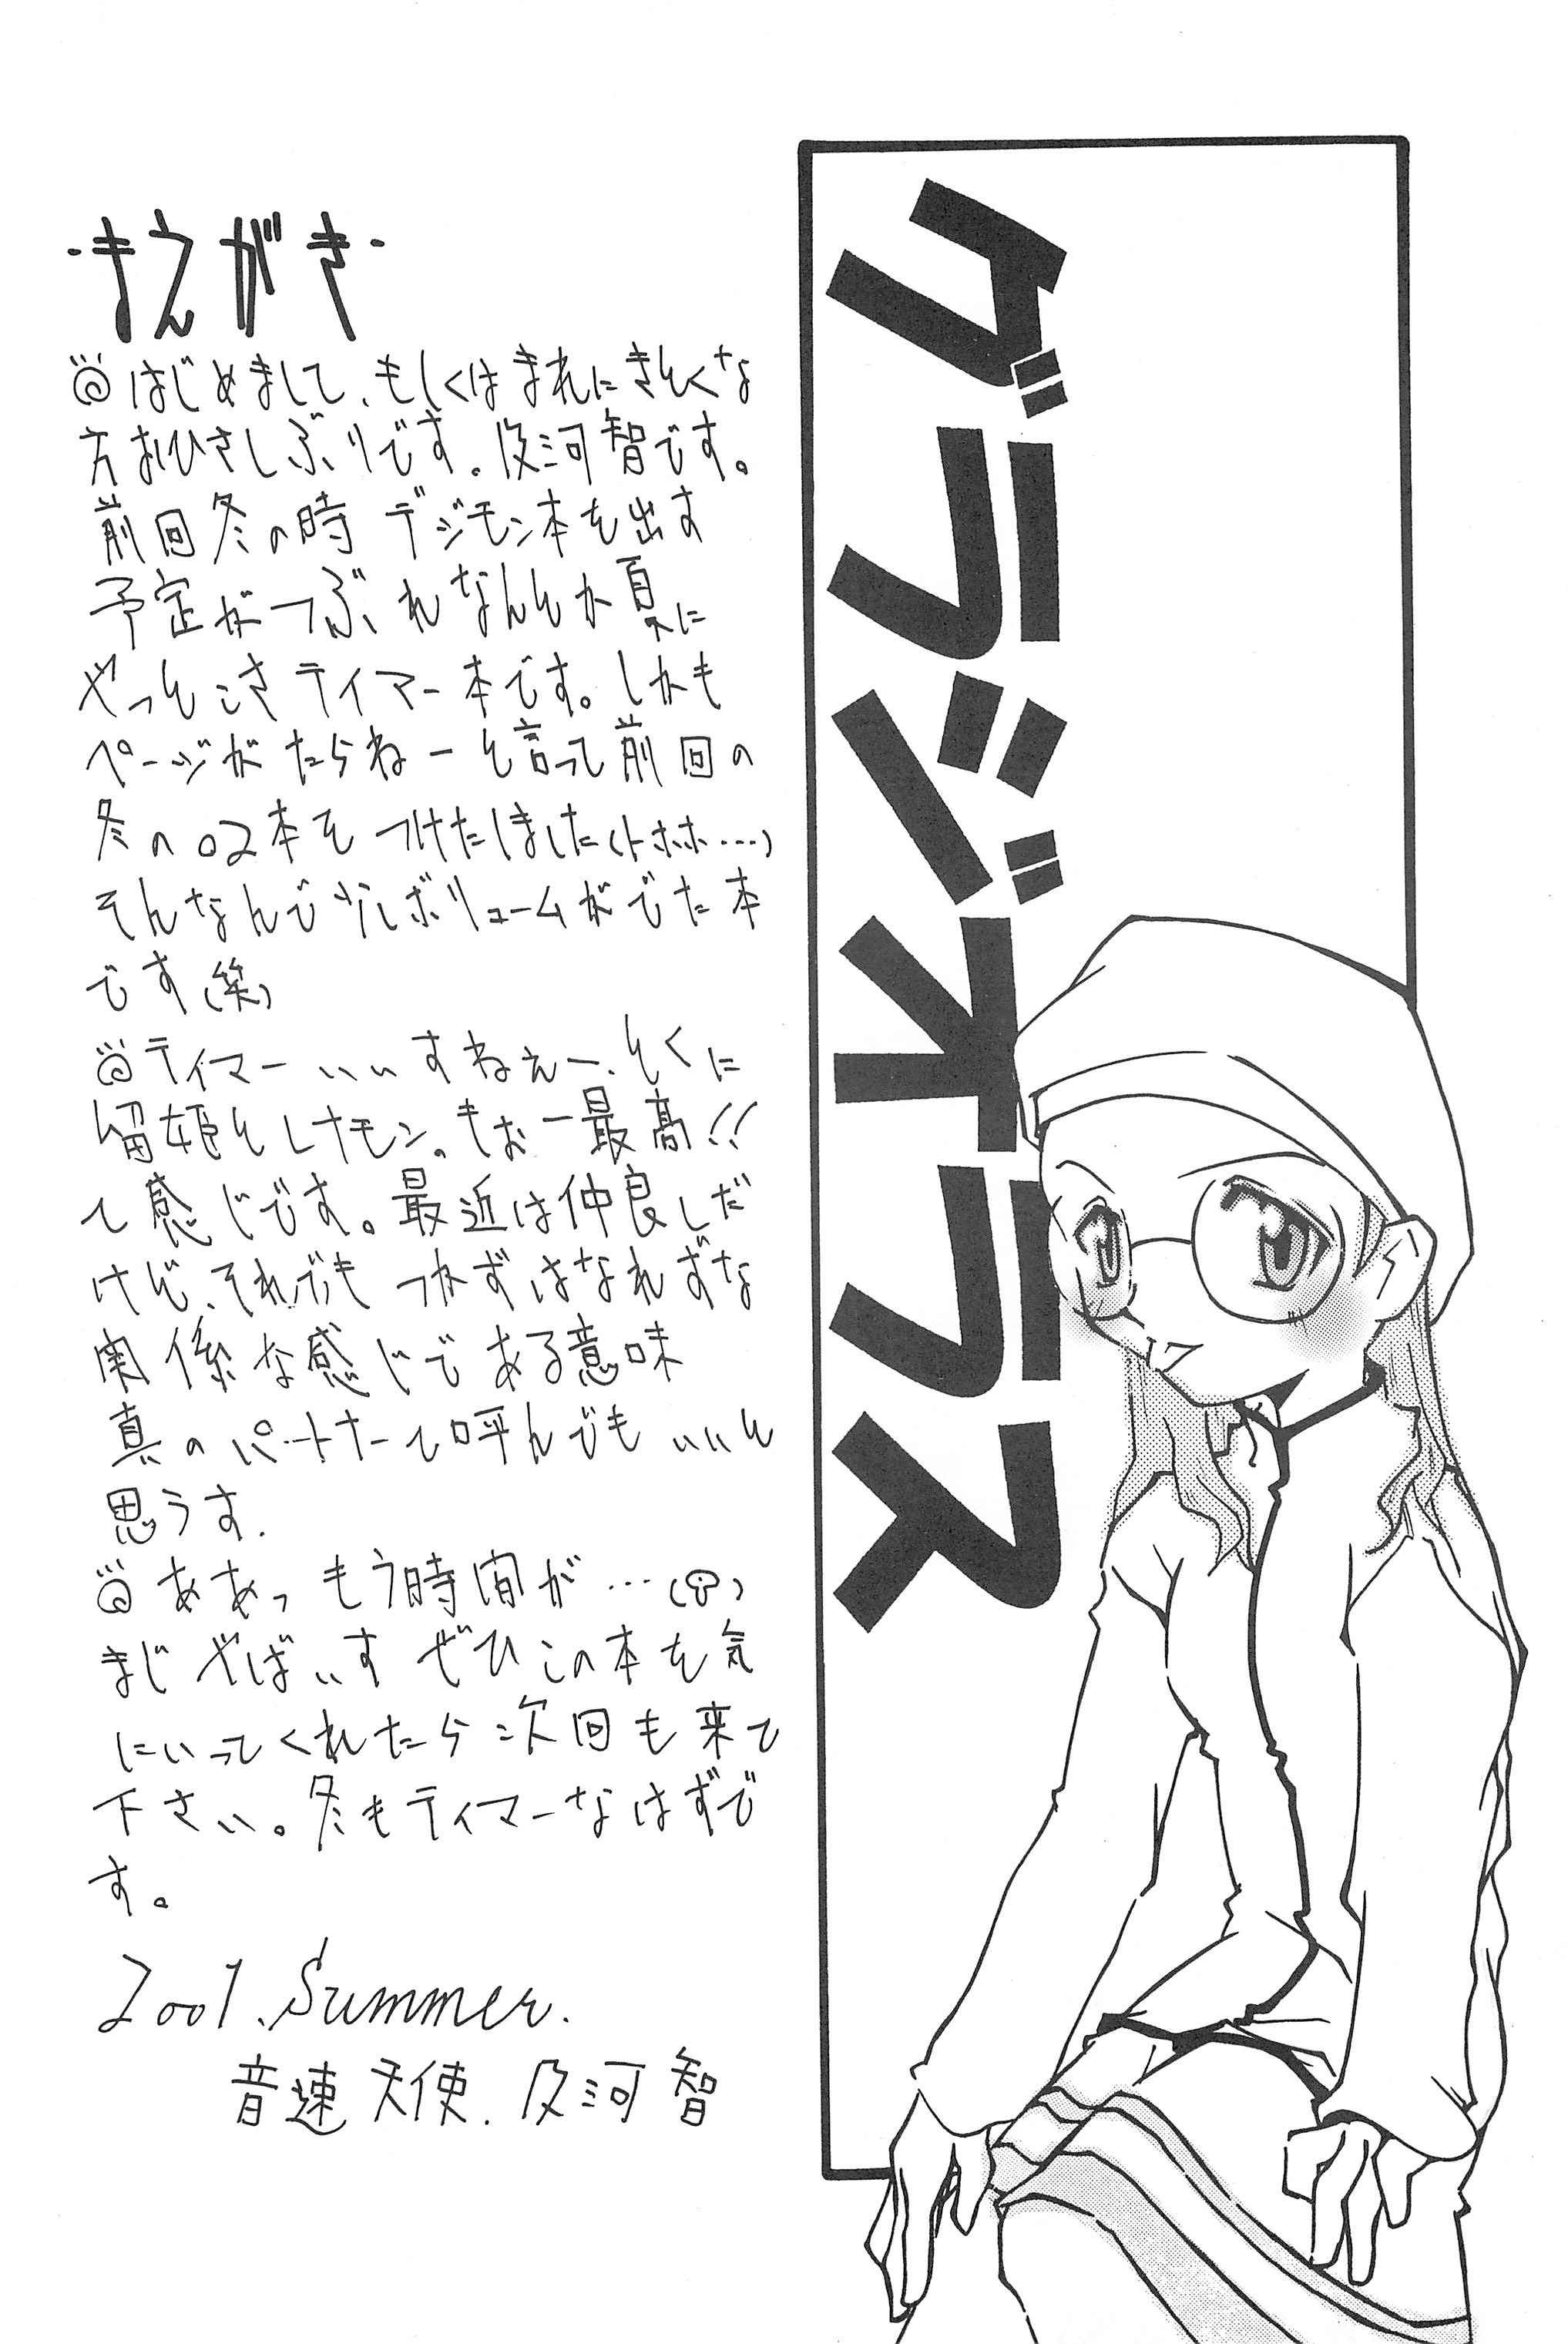 グラジオラス
・まえがき・
はじめまして、もしくはまれにきそくな
方おひさしぶりです。及河智です。
前回冬の時 デジモン本を出す
予定がつぶれなんとか夏に
やっとこさテイマー本です。しかも
ページがたらねーと言って前回の
冬の02本をつけたしました(トホホ…)
そんなんで少しボリュームがでた本
です(笑)
テイマーいいすねぇー、とくに
留姫とレナモン。もぉー最高!!
て感じです。最近は仲良しだ
けど、それでもつかずはなれずな
関係な感じである意味
真のパートナーて呼んでもいいと
思うす.
ああっもう時間が…
まじやばいす ぜひこの本を気
にいってくれたら次回も来て
下さい。冬もテイマーなはずで
す。
2001.Summer.
音速天使.及河智